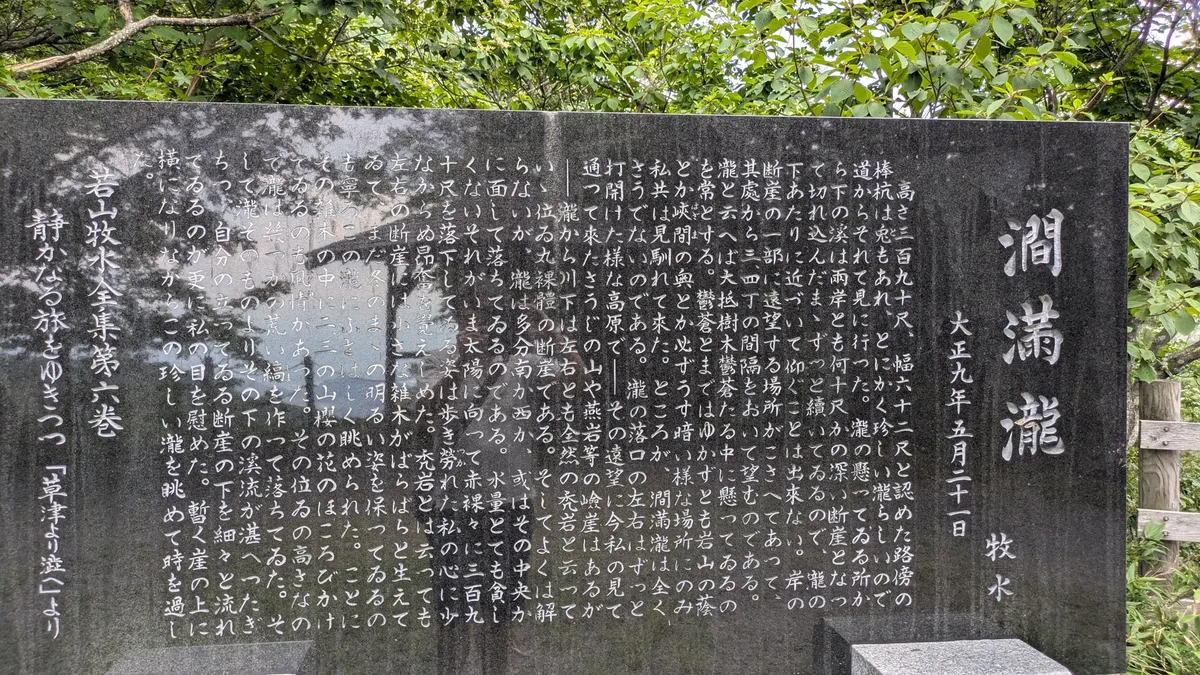 澗満瀧
牧水
大正九年五月二十一日
高さ三百九十尺、幅六十二尺と認めた路傍の
棒杭は兎もあれ、とにかく珍しい瀧らしいので
道からそれて見に行った。瀧の懸ってゐる所か
ら下の溪は両岸とも何十尺かの深い断崖となっ
て切れ込んだまゝずっと続いてゐるので、瀧の
下あたりに近づいて仰ぐことは出來ない。岸の
断崖の一部に遠望する場所がこさへてあって、
其處から三四丁の間隔をおいて望むのである。
瀧と云へば大抵樹木鬱蒼たる中に懸ってゐるの
を常とする。鬱蒼とまではゆかずとも岩山の蔭
とか峡間の奥とか必ずうす暗い様な場所にのみ
私共は見馴れて來た。ところが、澗満瀧は全く
さうでないのである。瀧の落口の左右はずっと
打開けた様な高原で――その遠望に今私の見て
通って來たさうじの山や燕岩等の嶮崖はあるが
――瀧から川下は左右とも全然の禿岩と云って
いゝ位ゐ丸裸體の断崖である。そしてよくは解
らないが、瀧は多分南か西か、或はその中央か
に面して落ちてゐるのである。水量とても貧し
くないそれがいま太陽に向って赤裸々に三百九
十尺を落下してゐる姿は歩き労れた私の心に少
なからぬ昂奮を覚えしめた。禿岩とは云っても
左右の断崖には小さな雑木がばらばらと生えて
ゐてまだ冬のまゝの明るい姿を保ってゐるの
も寧ろこの瀧にふさはしく眺められた。ことに
その雑木の中に二、三の山櫻の花のほころびかけ
てゐるのも風情があった。その位ゐの高さなの
で瀧は幾つかの荒い縞を作って落ちてゐた。そ
して瀧そのものよりその下の溪流が湛へつたぎ
ちつ、自分の立ってゐる断崖の下を細々と流れ
てゐるのが更に私の目を慰めた。暫く崖の上に
横になりながらこの珍しい瀧を眺めて時を過し
た。
若山牧水全集第六巻
静かなる旅をゆきつつ「草津より澁へ」より